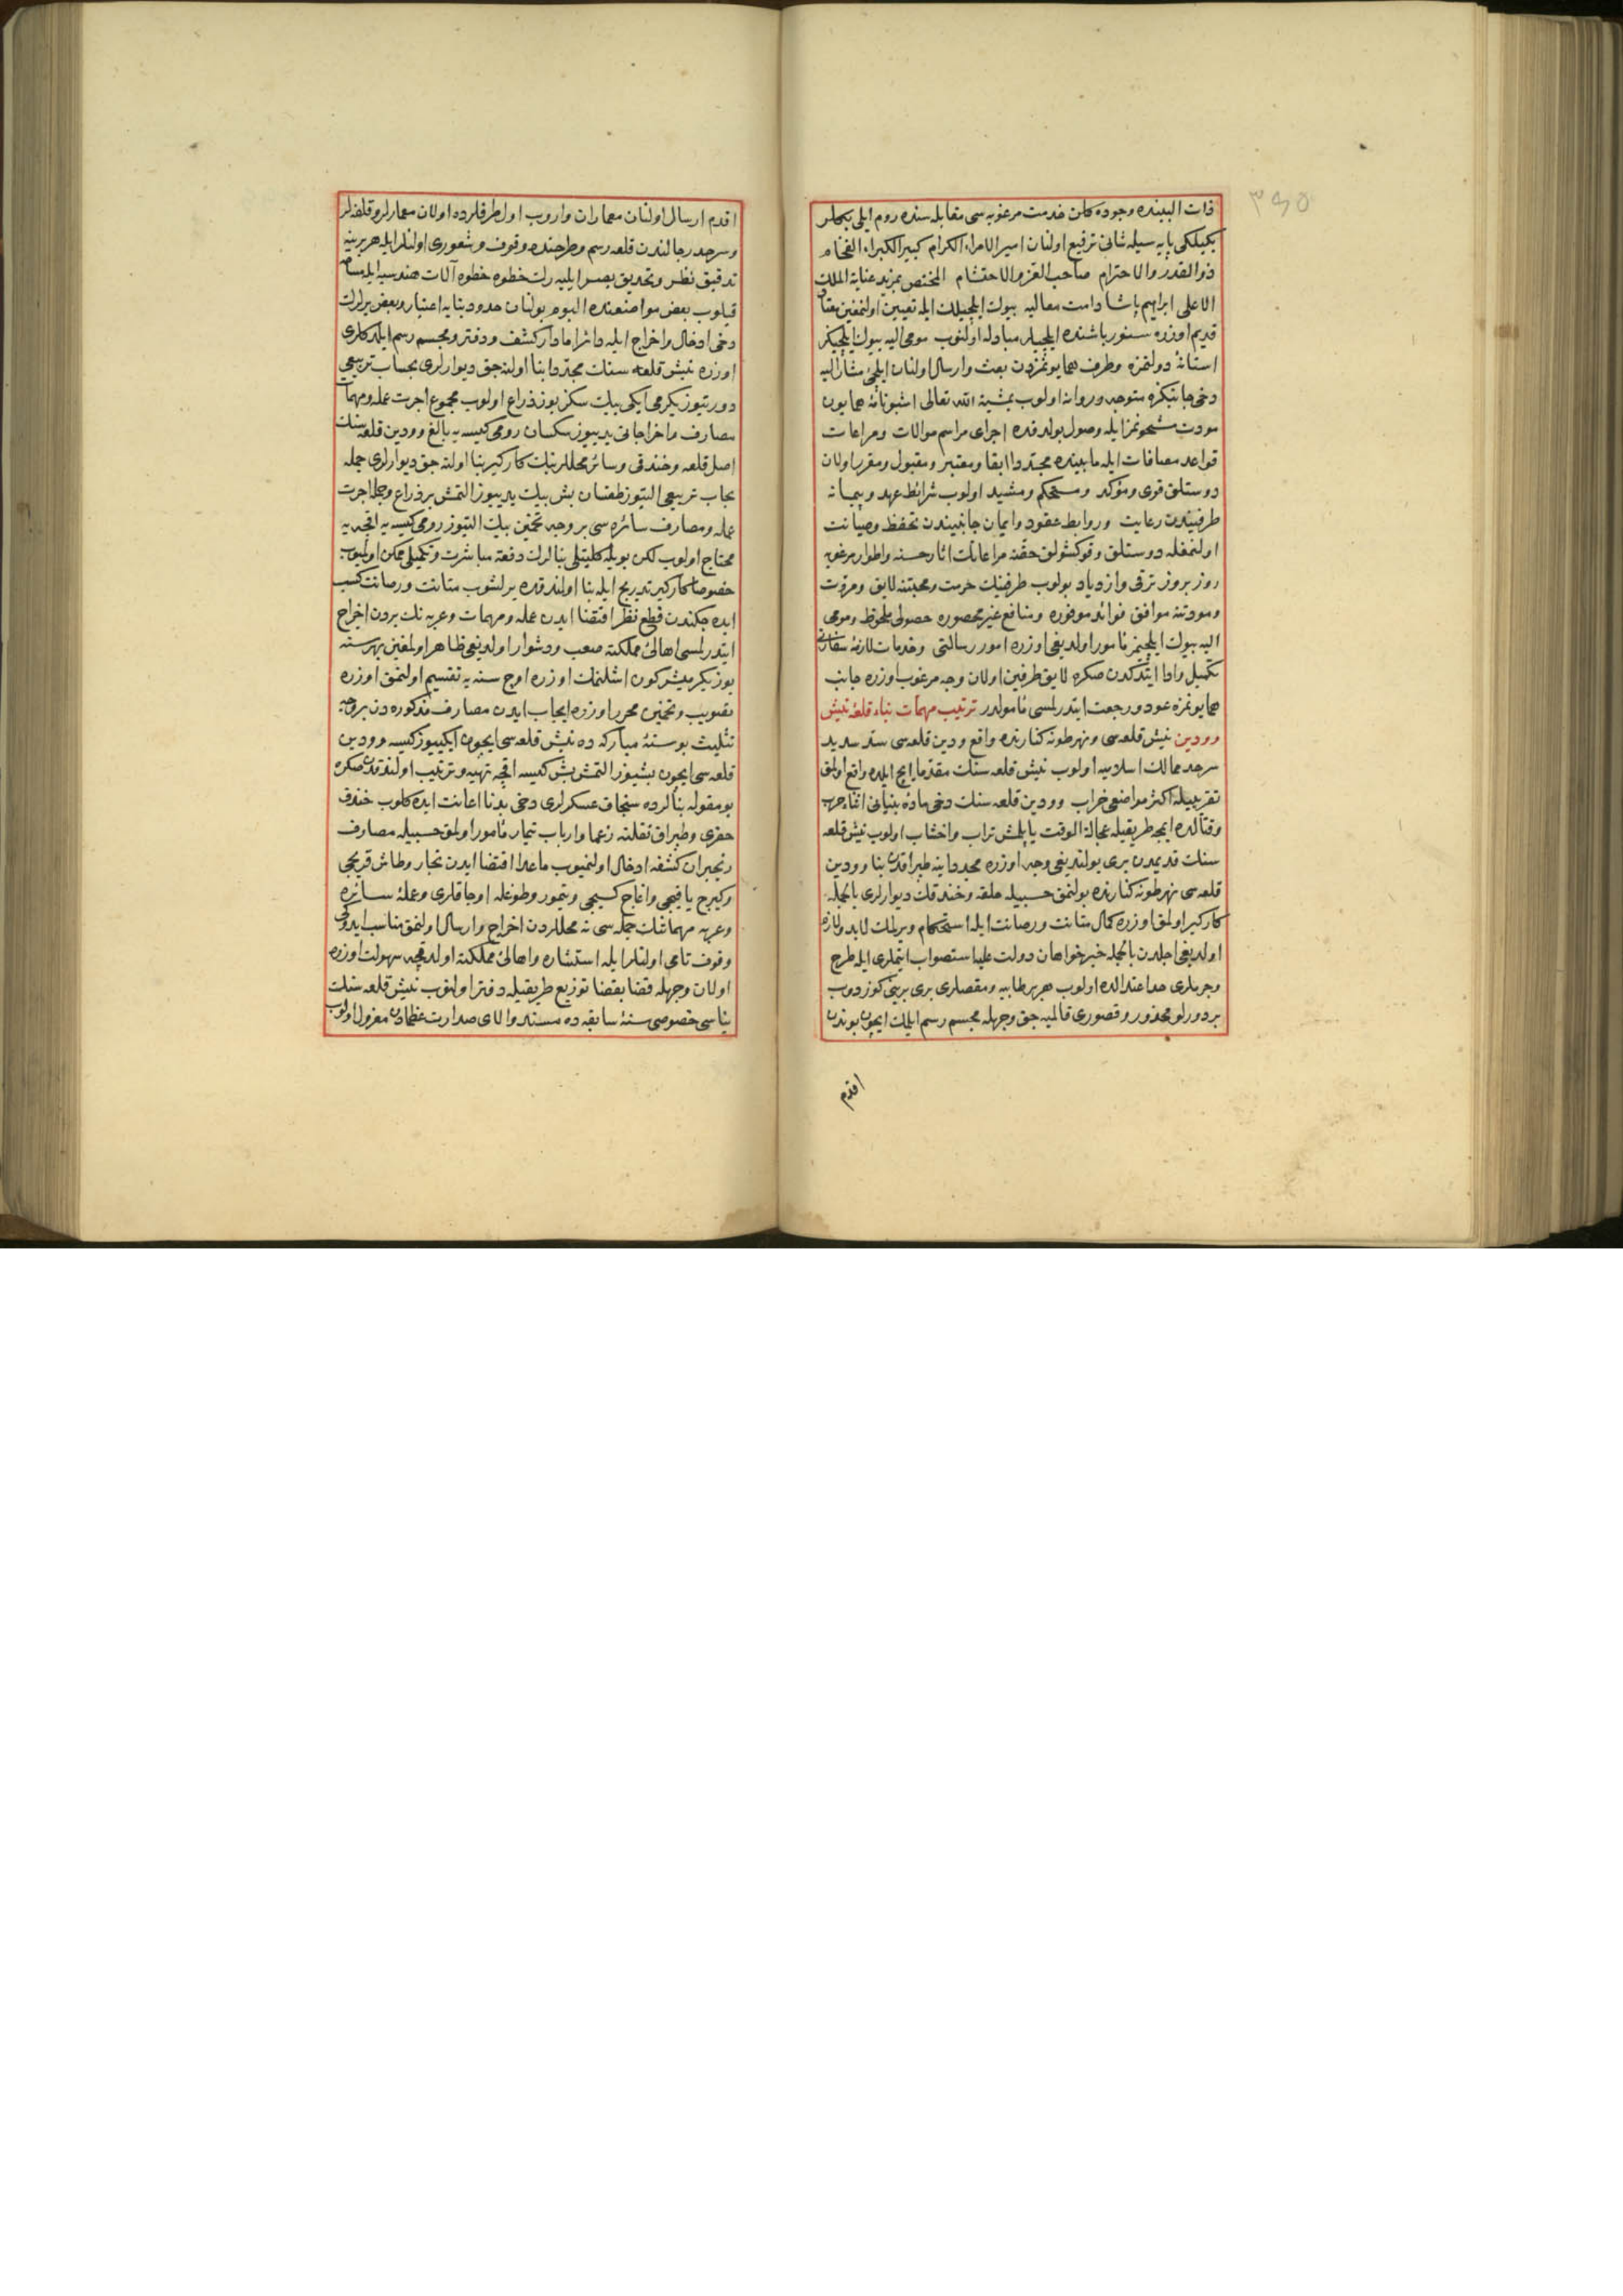 ٣٩٥
ذات البینده وجوده کلن خدمت مرغوبه سی مقابله سنده روم ایلی بکلر
بکیلکی پایه سیله شانی ترفیع اولنان امیر الامراء الکرام کبیر الکبراء الفخام
ذو القدر والاحترام صاحب العز والاحتشام المختص بمزید عنایة الملك
الاعلی ابراهیم پاشا دامت معالیه بیوك ایلچیلك ایله تعیین اولنمغین معتاد
قدیم اوزره سنور باشنده ایلچیلر مبادله اولنوب مومی الیه بیوك ایلچیکز
استانۀ دولتمزه وطرف همایونمزدن بعث وارسال اولنان ایلچئ مشار الیه
دخی جانبکزه متوجه وروانه اولوب بمشیة الله تعالی اشبو نامۀ همایون
مودت مشحونمز ایله وصول بولدقده اجرای مراسم موالات ومراعات
قواعد مصافات ایله مابینده مجددا ابقا ومعتبر ومقبول ومقرر اولان
دوستلق قوی ومؤکد ومستحکم ومشید اولوب شرائط عهد وپیمانه
طرفیندن رعایت وروابط عقود وایمان جانبیندن تحفظ وصیانت
اولنمغله دوستلق وقوکشولق حقنه مراعاتك اثار حسنه واطوار مرغوبه
روز بروز ترقی وازدیاد بولوب طرفینك حرمت ومحبتنه لایق ومروت
ومودتنه موافق فوائد موفوره ومنافع غیر محصوره حصولی ملحوظ ومومی
الیه بیوك ایلچیمز مأمور اولدیغی اوزره امور رسالتی وخدمات لازمۀ سفارتی
تکمیل وادا ایتدکدن صکره لایق طرفین اولان وجه مرغوب اوزره جانب
همایونمزه عود ورجعت ایتدرلمسی مأمولدر ترتیب مهمات بناء قلعۀ نیش
وودین نیش قلعه سی ونهر طونه کنارنده واقع ودین قلعه سی سد سدید
سرحد ممالك اسلامیه اولوب نیش قلعه سنك مقدما ایچ ایلده واقع اولمق
تقریبیله اکثر مواضعی خراب وودین قلعه سنك دخی مادۀ بنیانی اثناء حرب
وقتالده ایجه طریقیله عجالة الوقت یاپلمش تراب واخشاب اولوب نیش قلعه
سنك قدیمدن بری بولندیغی وجه اوزره مجددا ینه طپراقدن بنا وودین
قلعه سی نهر طونه کنارنده بولنمق حسبیله خلقه وخندقك دیوارلری بالجمله
کارکیر اولمق اوزره کمال متانت ورصانت ایله استحکام ویرلمك لابد ولازم
اولدیغی اجلدن بالجمله خیر خواهان دولت علیا استصواب ایتملری ایله طرح
وجربلری حد اعتدالده اولوب هر بر طابیه ومقصلری بری برینی کوزدوب
بر دورلو محذور وقصوری قالمیه جق وجهله مجسم رسم ایلمك ایچون بوندن
اقدم
اقدم ارسال اولنان معماران واروب اول طرفلرده اولان معمارلر وقلفه لر
وسرحد رجالندن قلعه رسم وطرحنده وقوف وشعوری اولنلر ایله هر برینه
تدقیق نظر وتحدیق بصر ایلیه رك خطوه خطوه آلات هندسیه ایله مساحه
قیلوب بعض مواضعنده الیوم بولنان حدود بنایه اعتبار وبعض یرلرك
دخی ادخال واخراج ایله دائرا مادار کشف ودفتر ومجسم رسم ایلدکلری
اوزره نیش قلعه سنك مجددا بنا اولنه جق دیوارلری بحساب تربیعی
دورتیوز یکرمی ایکی بیك سکز یوز ذراع اولوب مجموع اجرت عمله ومهمات
مصارف واخراجاتی یدییوز سکسان رومی کیسه یه بالغ وودین قلعه سنك
اصل قلعه وخندقی وسائر محللرینك کارکیر بنا اولنه جق دیوارلری جمله
بحساب تربیعی التیوز طقسان بش بیك یدییوز التمش بر ذراع وجمله اجرت
عمله ومصارف سائره سی بر وجه تخمین بیك التیوز رومی کیسه یه اقچه یه
محتاج اولوب لکن بویله کلیتلی بنالرك دفعة مباشرت وتکمیلی ممکن اولمیوب
خصوصا کارکیر تدریج ایله بنا اولندقده یرلشوب متانت ورصانت کسب
ایده جکندن قطع نظر اقتضا ایدن عمله ومهمات وعربه نك بردن اخراج
ایتدرلمسی اهالئ مملکته صعب ودشوار اولدیغی ظاهر اولمغین بهر سنه
یوز یکرمیشر کون اشلنمك اوزره اوچ سنه یه تقسیم اولنمق اوزره
تصویب وتخمین محرر اوزره ایجاب ایدن مصارف مذکوره دن بر وجه
تثلیث بو سنۀ مبارکه ده نیش قلعه سی ایچون ایکییوز کیسه وودین
قلعه سی ایچون بشیوز التمش بش کیسه اقچه تهیه وترتیب اولندقدن صکره
بو مقوله بنالرده سنجاق عسکرلری دخی بدنا اعانت ایده کلوب خندق
حفری وطپراق نقلنه زعما وارباب تیمار مأمور اولمق حسبیله مصارف
رنجبران کشفه ادخال اولنمیوب ماعدا اقتضا ایدن نجار وطاش قریجی
وکیرج یاقیجی واغاج کسیجی وتیمور وطوغله اوجاقلری وعملۀ سائره
وعربه مهماتنك جمله سی نه محللردن اخراج وارسال اولنمق مناسب ایدوکی
وقوف تامی اولنلر ایله استشاره واهالئ مملکته اولدقچه سهولت اوزره
اولان وجهله قضا بقضا توزیع طریقیله دفتر اولنوب نیش قلعه سنك
بناسی خصوصی سنۀ سابقه ده مسند والای صدارت عظمادن معزول اولوب